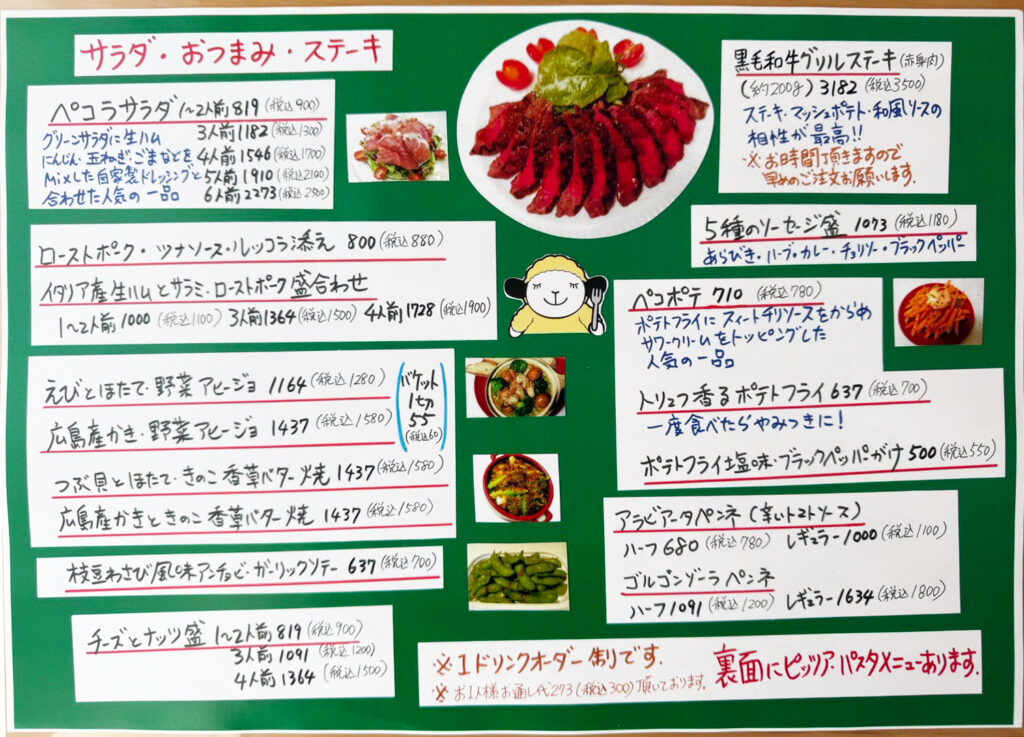 サラダ・おつまみ・ステーキ
ペコラサラダ 1〜2人前 819 (税込900)
グリーンサラダに生ハム 3人前 1182 (税込1300)
にんじん・玉ねぎ・ごまなどを 4人前 1546 (税込1700)
Mixした自家製ドレッシングと 5人前 1910 (税込2100)
合わせた人気の一品 6人前 2273 (税込2500)
ローストポーク・ツナソース・ルッコラ添え 800 (税込880)
イタリア産生ハムとサラミ・ローストポーク盛合わせ
1〜2人前 1000 (税込1100) 3人前 1364 (税込1500) 4人前 1728 (税込1900)
えびとほたて・野菜アヒージョ 1164 (税込1280)
広島産かき・野菜アヒージョ 1437 (税込1580)
バケット
1切
55
(税込60)
つぶ貝とほたて・きのこ香草バター焼 1437 (税込1580)
広島産かきときのこ香草バター焼 1437 (税込1580)
枝豆わさび風味アンチョビ・ガーリックソテー 637 (税込700)
チーズとナッツ盛 1〜2人前 819 (税込900)
3人前 1091 (税込1200)
4人前 1364 (税込1500)
黒毛和牛グリルステーキ (赤身肉)
(約200g) 3182 (税込3500)
ステーキ・マッシュポテト・和風ソースの
相性が最高!!
※お時間頂きますので
早めのご注文お願いします.
5種のソーセージ盛 1073 (税込1180)
あらびき・ハーブ・カレー・チョリソー・ブラックペッパー
ペコポテ 710 (税込780)
ポテトフライにスイートチリソースをからめ
サワークリームをトッピングした
人気の一品
トリュフ香るポテトフライ 637 (税込700)
一度食べたらやみつきに!
ポテトフライ塩味・ブラックペッパーがけ 500 (税込550)
アラビアータペンネ (辛いトマトソース)
ハーフ 680 (税込780) レギュラー 1000 (税込1100)
ゴルゴンゾーラペンネ
ハーフ 1091 (税込1200) レギュラー 1634 (税込1800)
※1ドリンクオーダー制です.
※お1人様お通し代273 (税込300) 頂いております.
裏面にピッツァ・パスタメニューあります.